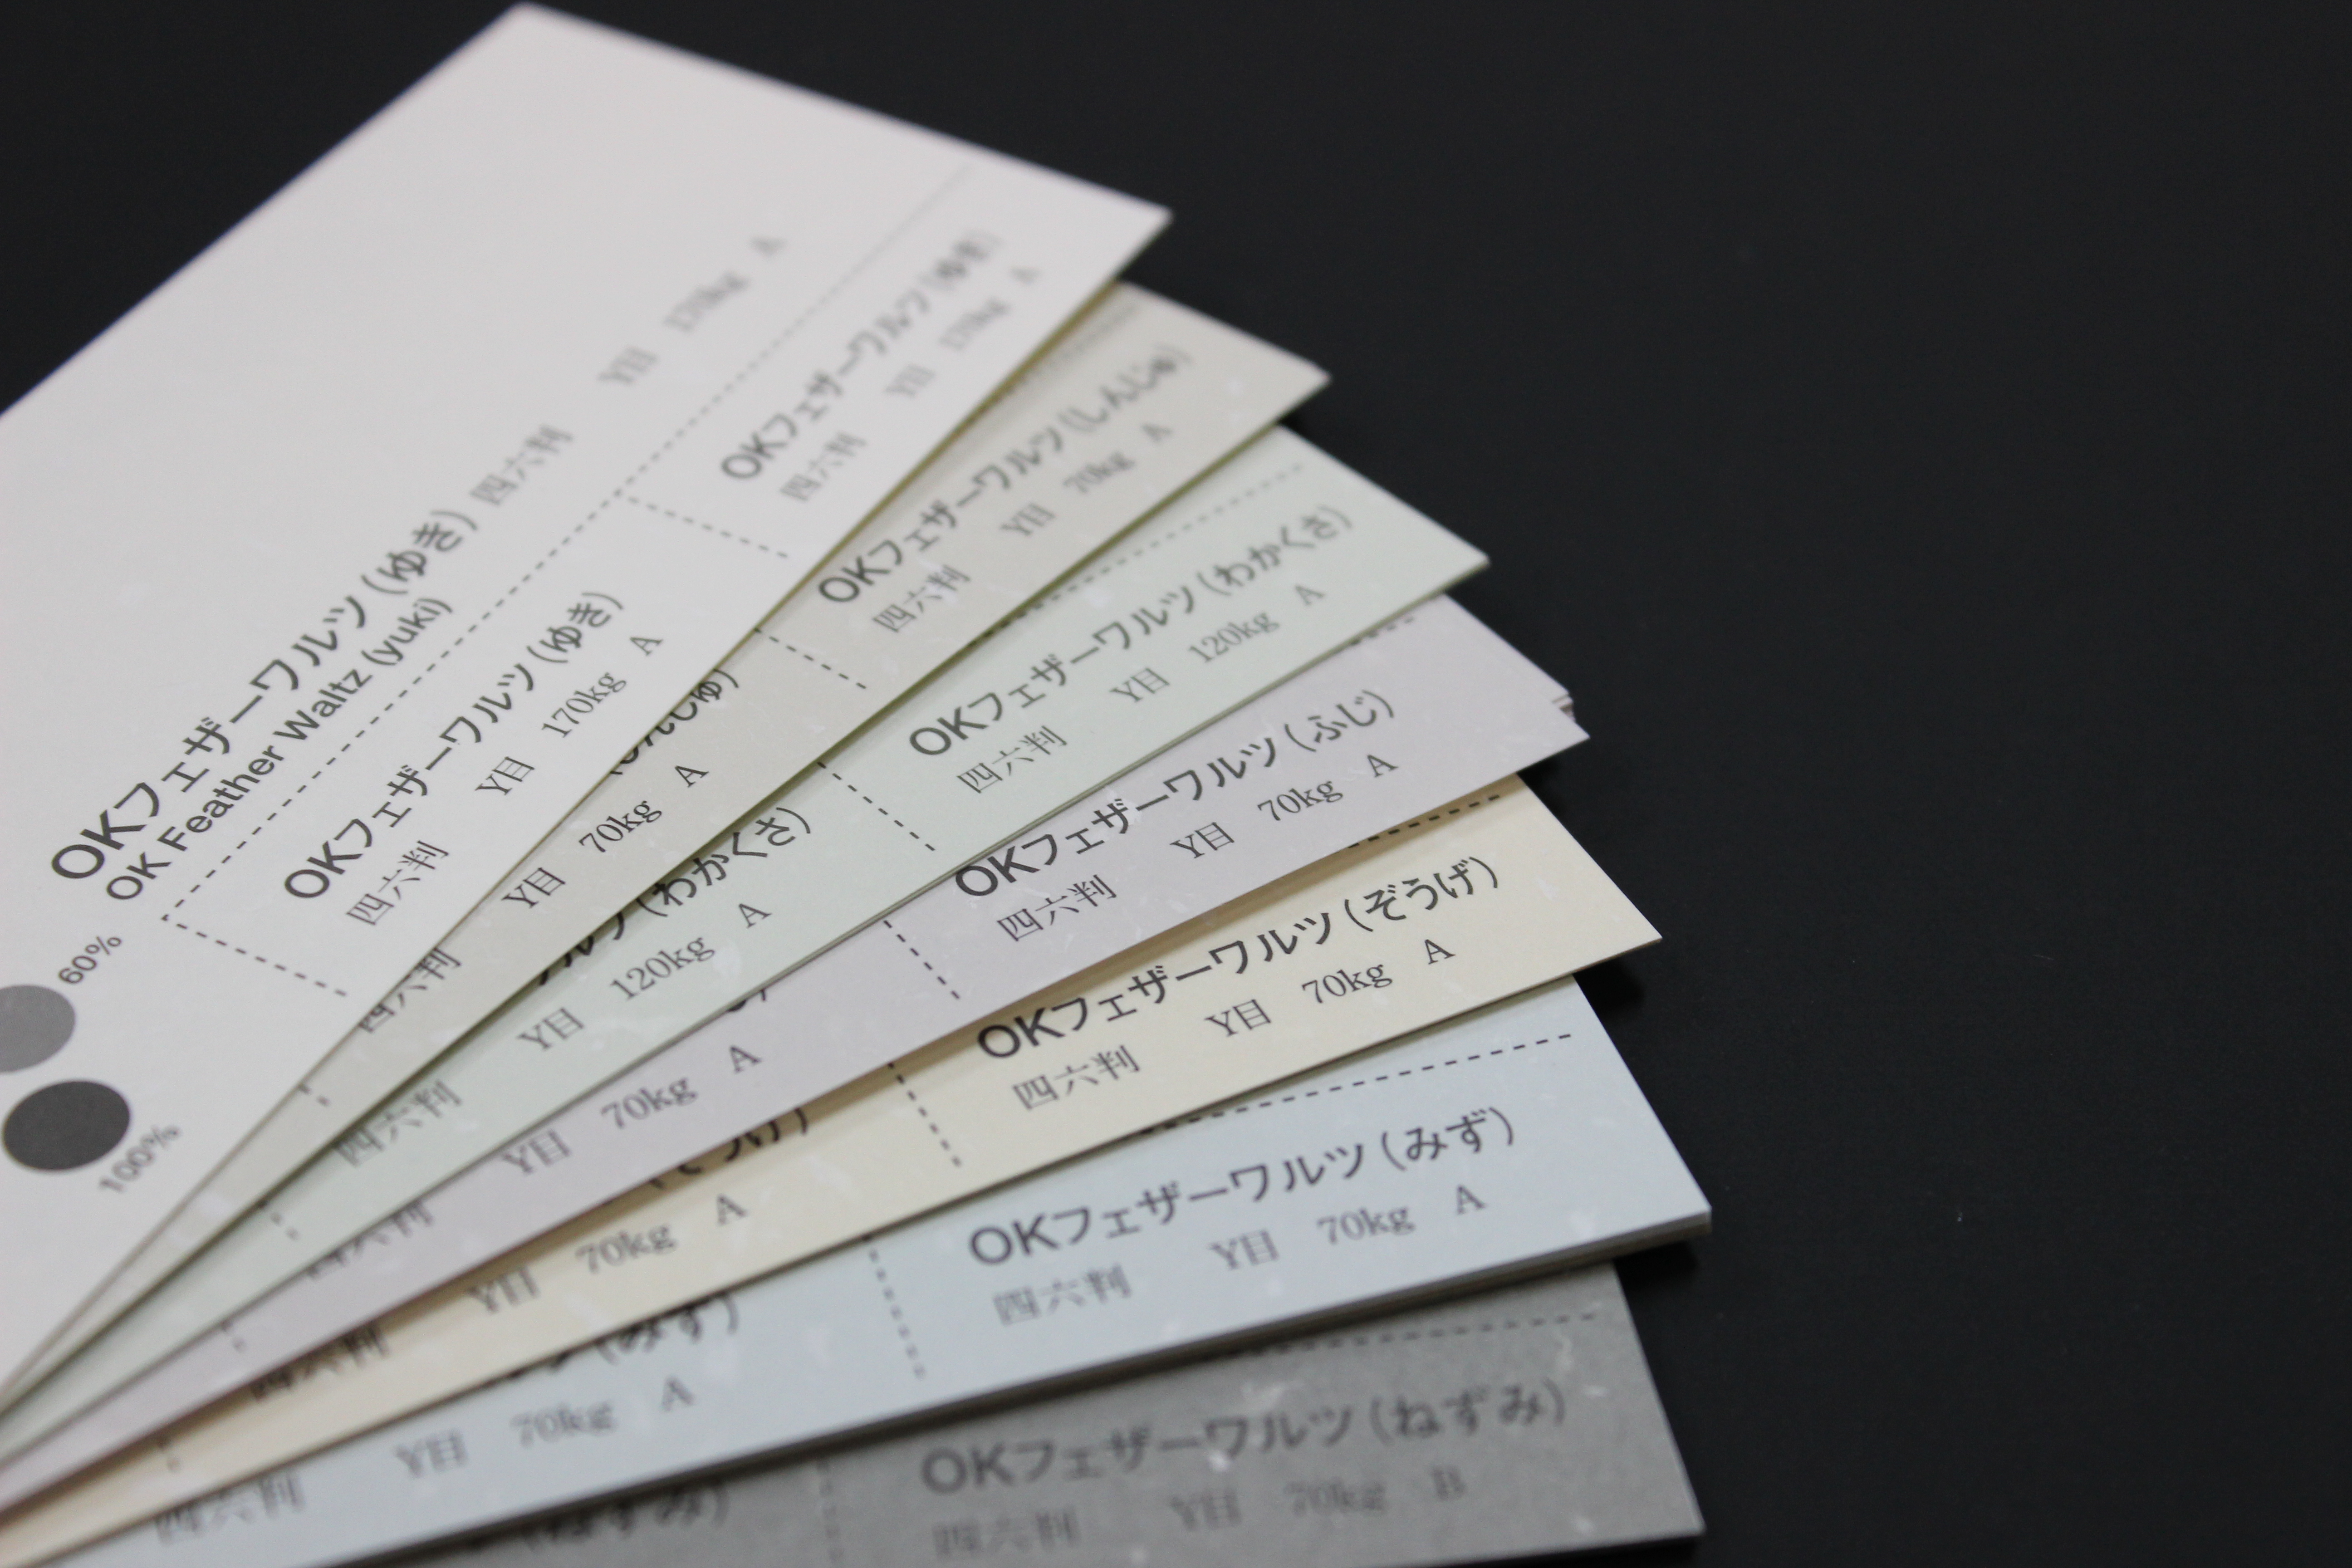 OKフェザーワルツ（ゆき） 四六判 Y目 170kg A
OK Feather Waltz (yuki)
OKフェザーワルツ（ゆき）
四六判 Y目 170kg A
OKフェザーワルツ（ゆき）
四六判 Y目 170kg A
60%
100%
OKフェザーワルツ（しんじゅ）
四六判 Y目 70kg A
んじゅ）
四六判 Y目 70kg A
OKフェザーワルツ（わかくさ）
四六判 Y目 120kg A
ルツ（わかくさ）
四六判 Y目 120kg A
OKフェザーワルツ（ふじ）
四六判 Y目 70kg A
四六判 Y目 70kg A
OKフェザーワルツ（ぞうげ）
四六判 Y目 70kg A
ぞうげ）
四六判 Y目 70kg A
OKフェザーワルツ（みず）
四六判 Y目 70kg A
ツ（みず）
四六判 Y目 70kg A
OKフェザーワルツ（ねずみ）
四六判 Y目 70kg B
（ねずみ）